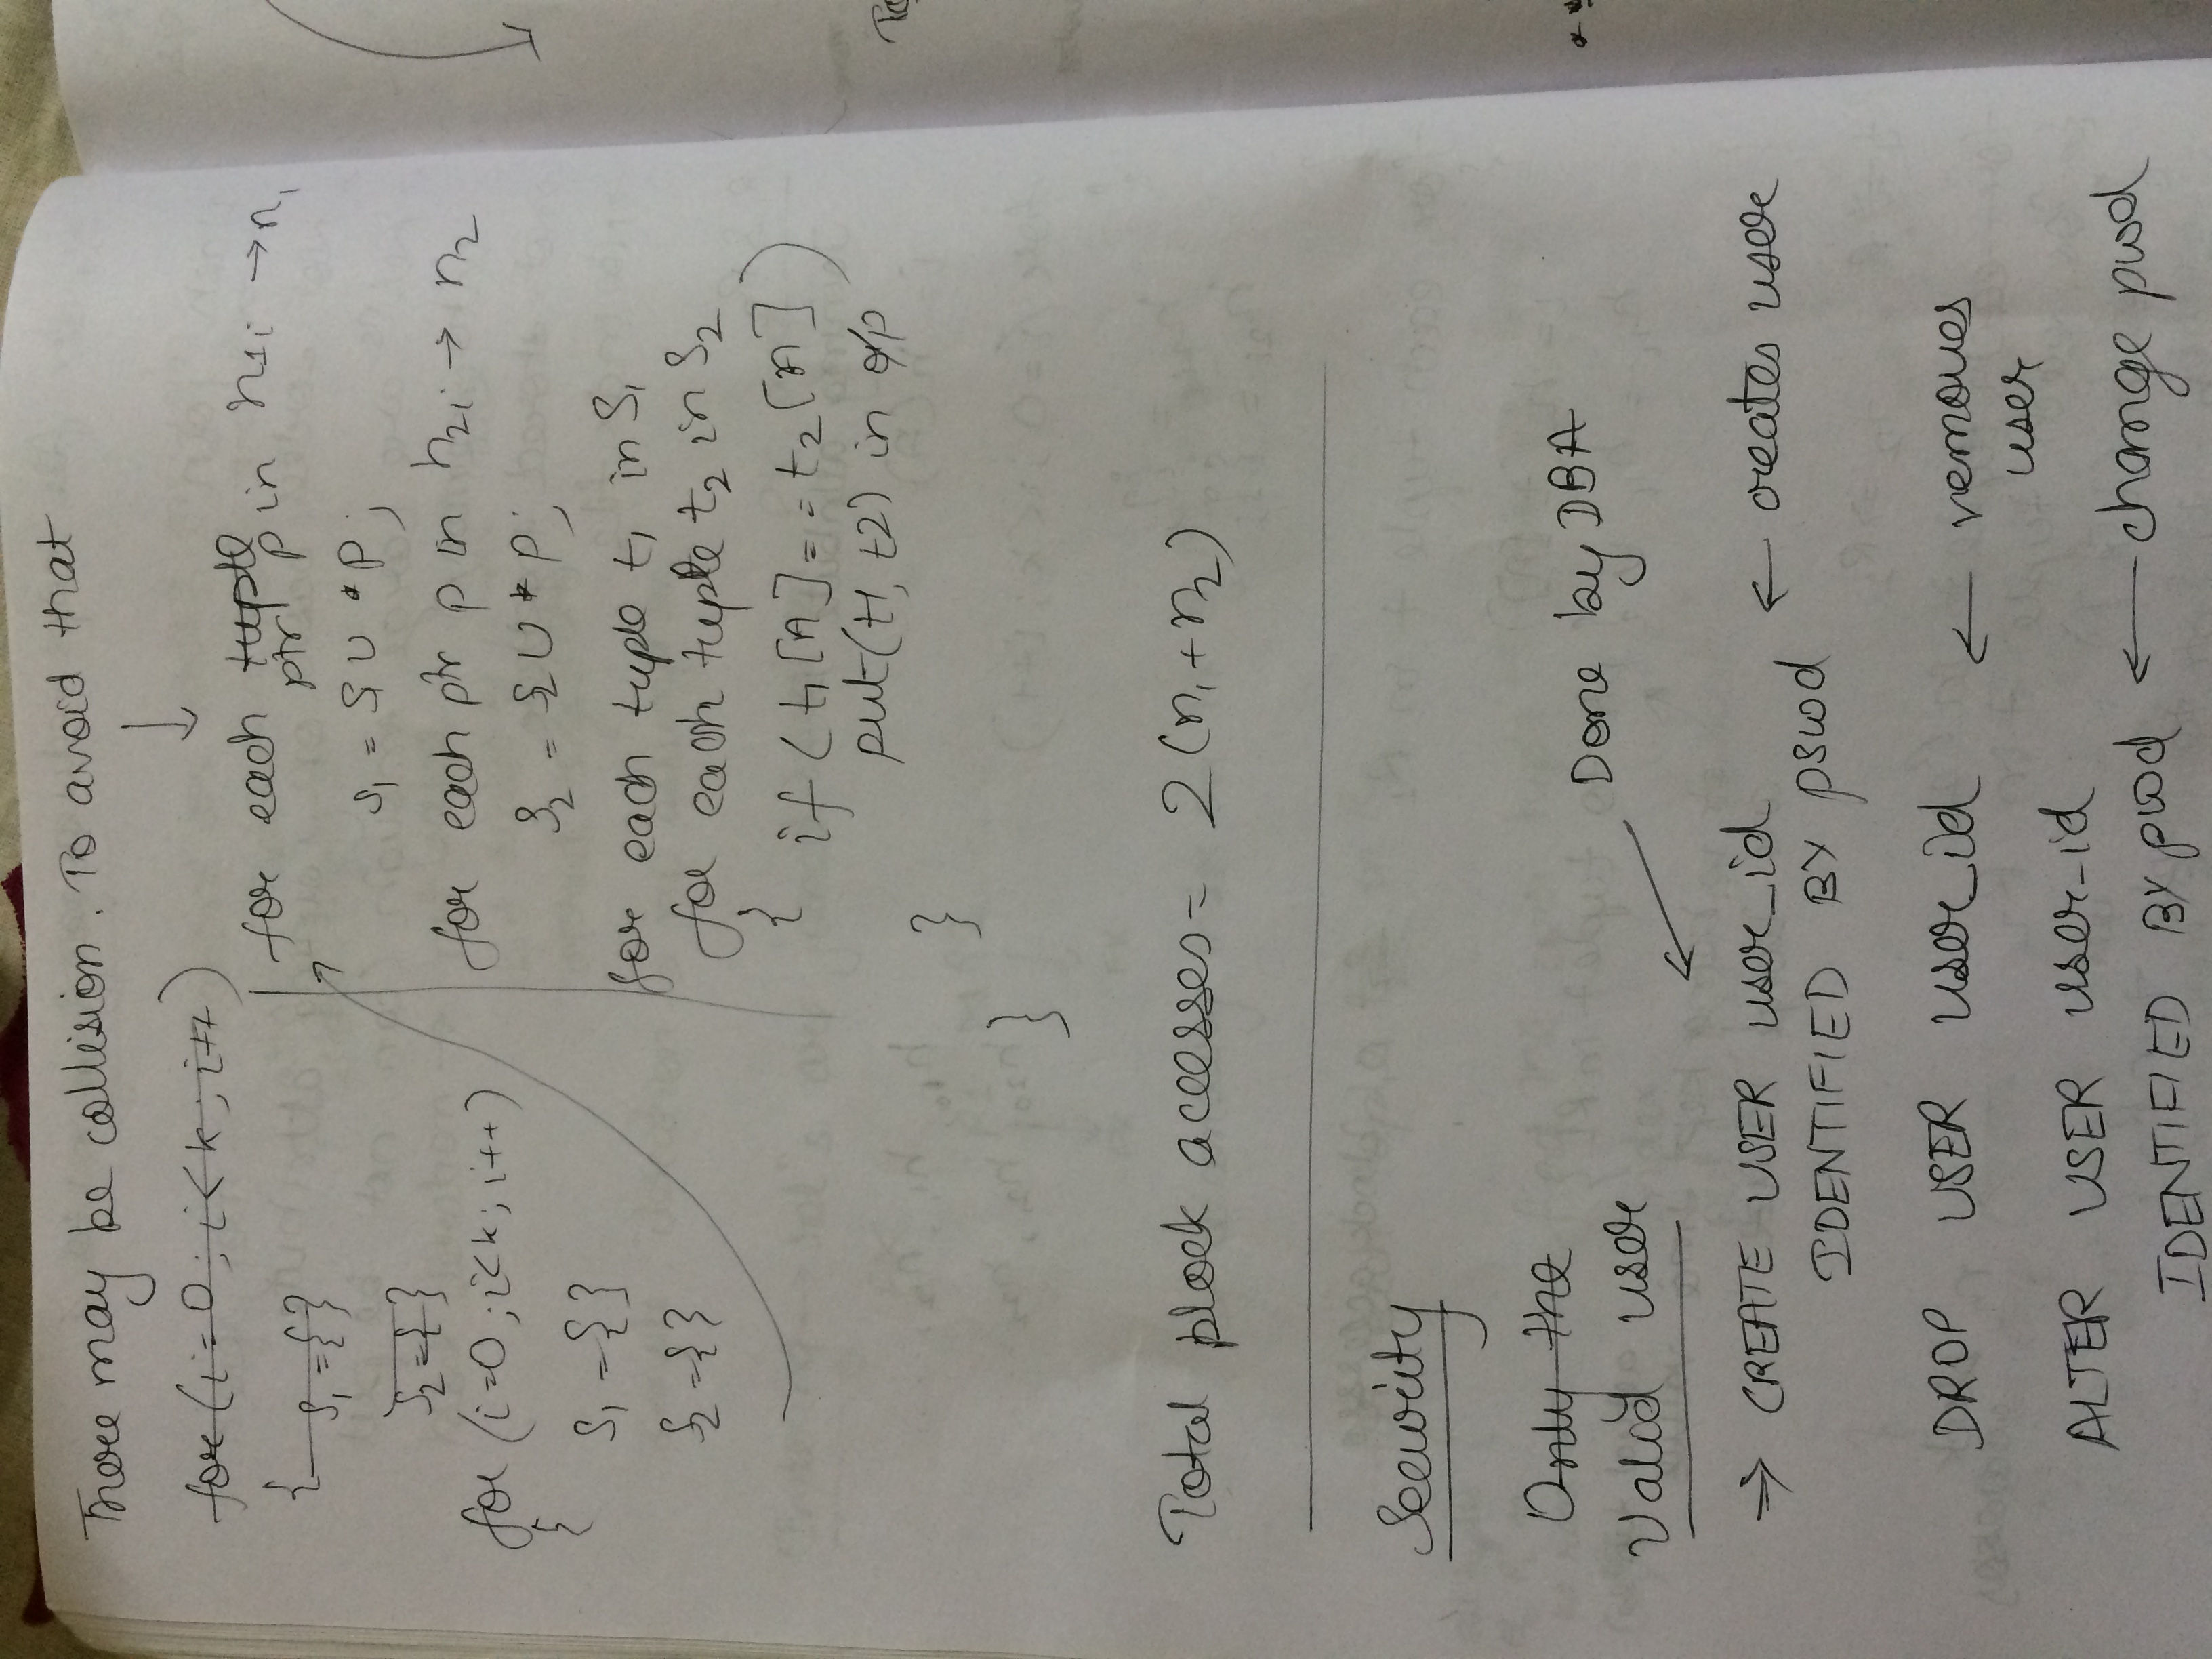 There may be collision. To avoid that
↓
for (i=0; i<k; i++)
{ S1={}
S2={}
for (i=0; i<k; i++)
{
S1={}
S2={}
for each tuple
ptr p in H1i → n1
S1 = S1 U *P;
for each ptr p in H2i → n2
S2 = S2 U *P;
for each tuple t1 in S1
for each tuple t2 in S2
{ if (t1[A] == t2[A])
put(t1, t2) in o/p
}
}
Total block accesses = 2(n1+n2)
Security
Only the
Valid user
Done by DBA
⇒ CREATE USER user_id ← creates user
IDENTIFIED BY pswd
DROP USER user_id ← removes
user
ALTER USER user_id
IDENTIFIED BY pwd ← change pwd